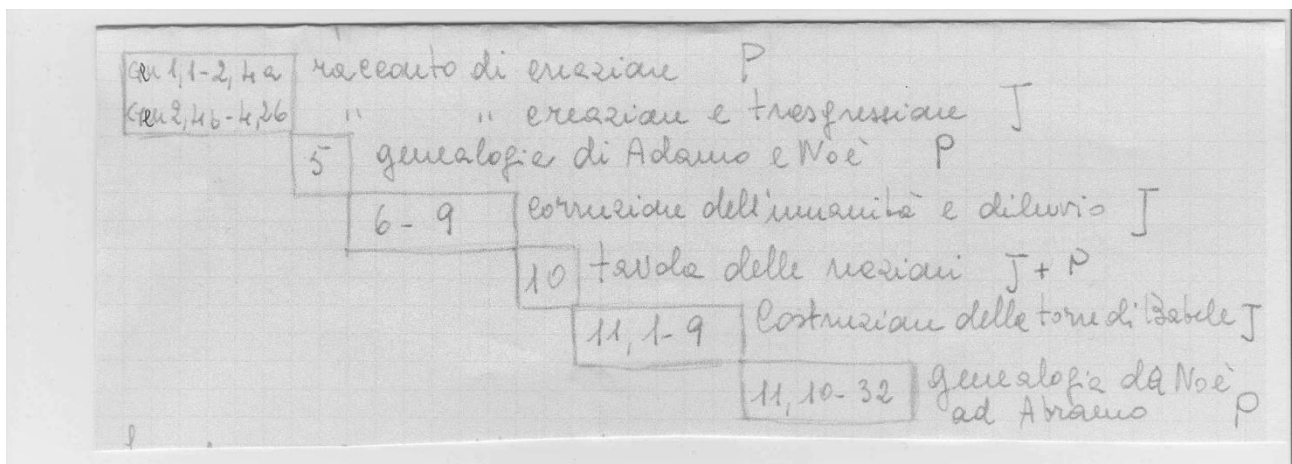 Gen 1,1-2,4a racconto di creazione P
Gen 2,4b-4,26 " " creazione e trasgressione J
5 genealogia di Adamo e Noè P
6-9 Corruzione dell'umanità e diluvio J
10 tavola delle nazioni J+P
11,1-9 Costruzione della torre di Babele J
11,10-32 genealogia da Noè
ad Abramo P